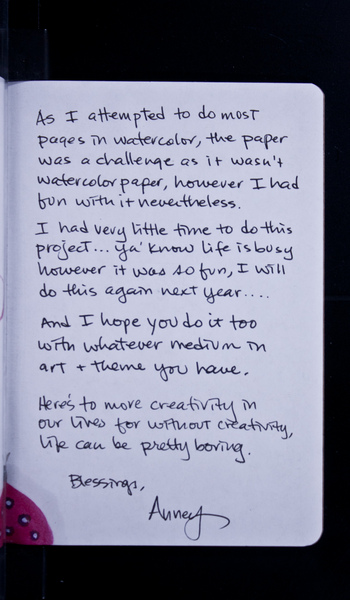 As I attempted to do most
pages in watercolor, the paper
was a challenge as it wasn't
watercolor paper, however I had
fun with it nevertheless.
I had very little time to do this
project... ya' know life is busy
however it was so fun, I will
do this again next year....
And I hope you do it too
with whatever medium in
art + theme you have.
Here's to more creativity in
our lives for without creativity,
life can be pretty boring.
Blessings,